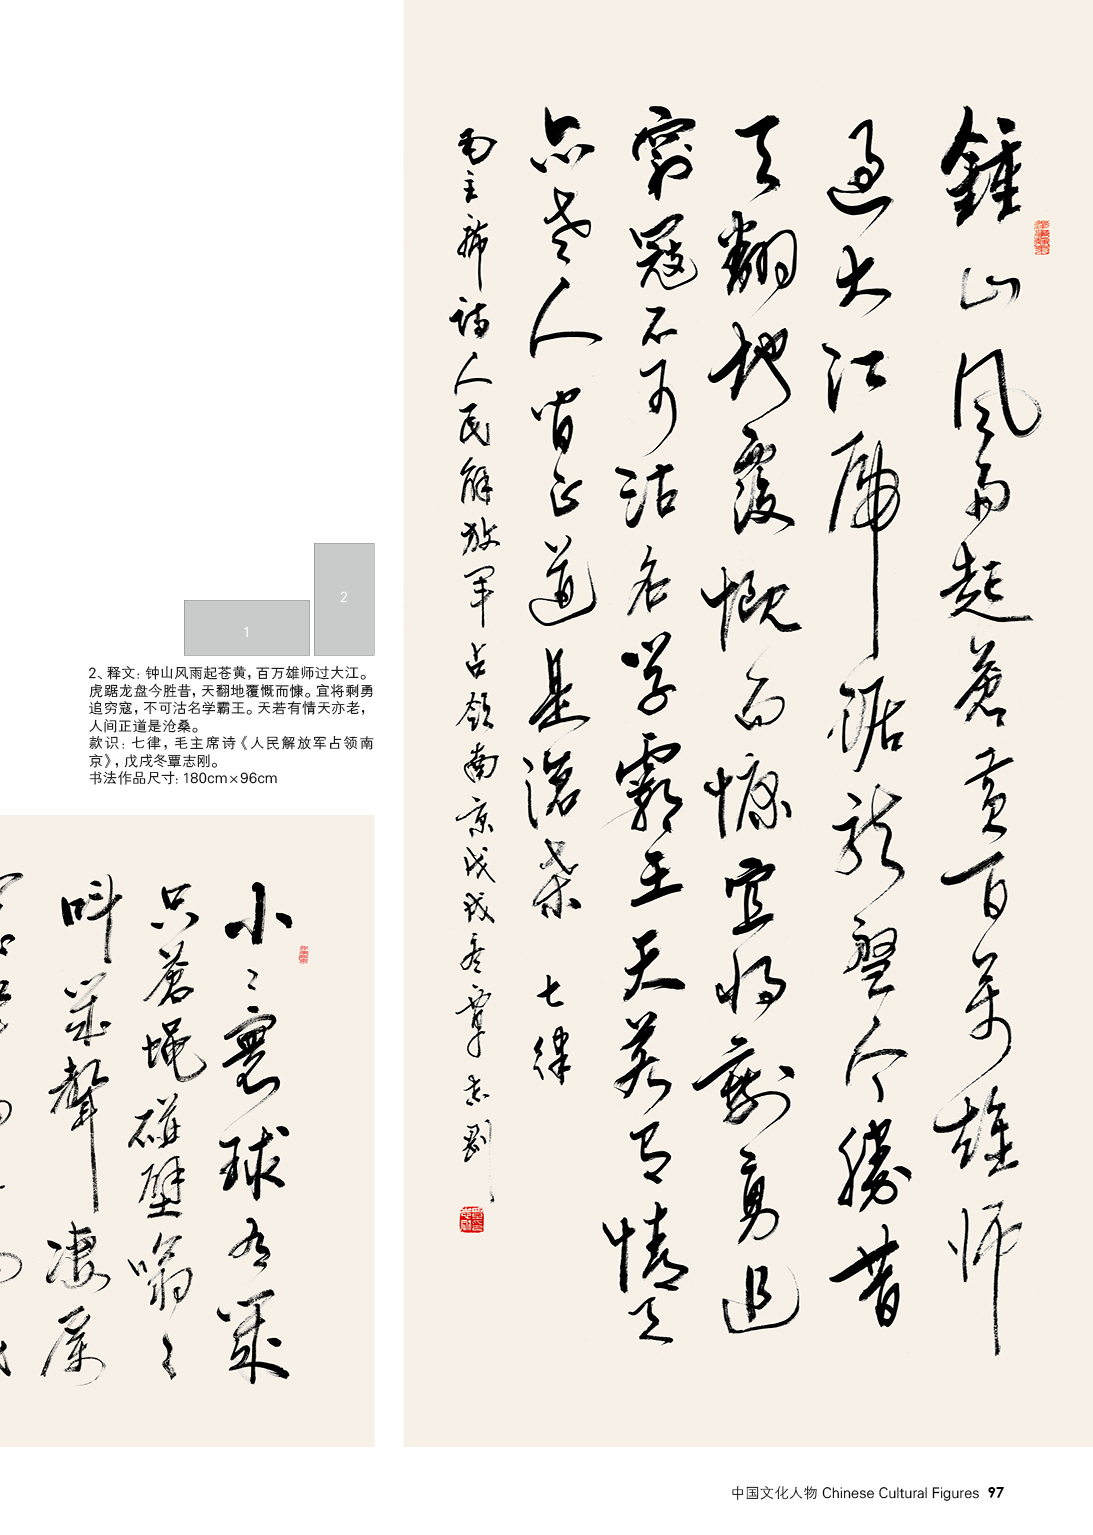 鍾山風雨起蒼黃百萬雄師
過大江虎踞龍盤今勝昔
天翻地覆慨而慷宜將剩勇追
窮寇不可沽名學霸王天若有情天
亦老人間正道是滄桑 七律
毛主席詩人民解放軍占領南京戊戌冬覃志剛
1
2
2、释文：钟山风雨起苍黄，百万雄师过大江。
虎踞龙盘今胜昔，天翻地覆慨而慷。宜将剩勇
追穷寇，不可沽名学霸王。天若有情天亦老，
人间正道是沧桑。
款识：七律，毛主席诗《人民解放军占领南
京》，戊戌冬覃志刚。
书法作品尺寸：180cm×96cm
小〻寰球有幾
只蒼蠅碰壁嗡〻
叫幾聲淒厲
中国文化人物 Chinese Cultural Figures 97